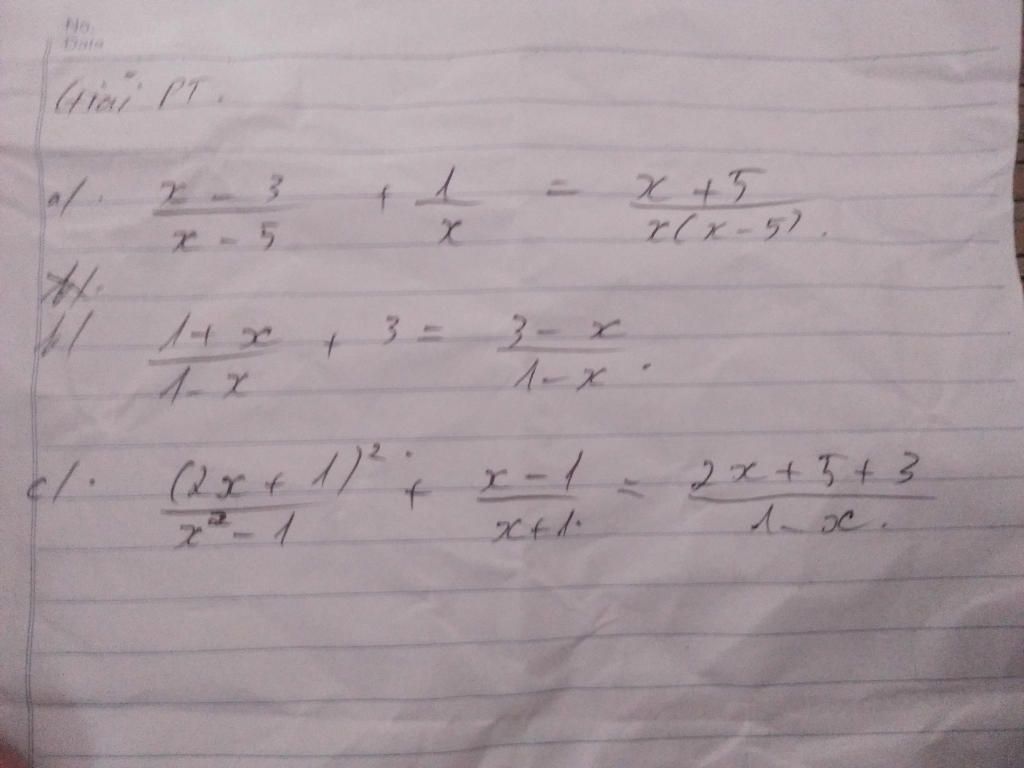 No.
Date
Giải PT.
a/. \frac{x - 3}{x - 5} + \frac{1}{x} = \frac{x + 5}{x(x - 5)}.
b/.
b/ \frac{1 + x}{1 - x} + 3 = \frac{3 - x}{1 - x}.
c/. \frac{(2x + 1)^2}{x^2 - 1} + \frac{x - 1}{x + 1} = \frac{2x + 5 + 3}{1 - x}.